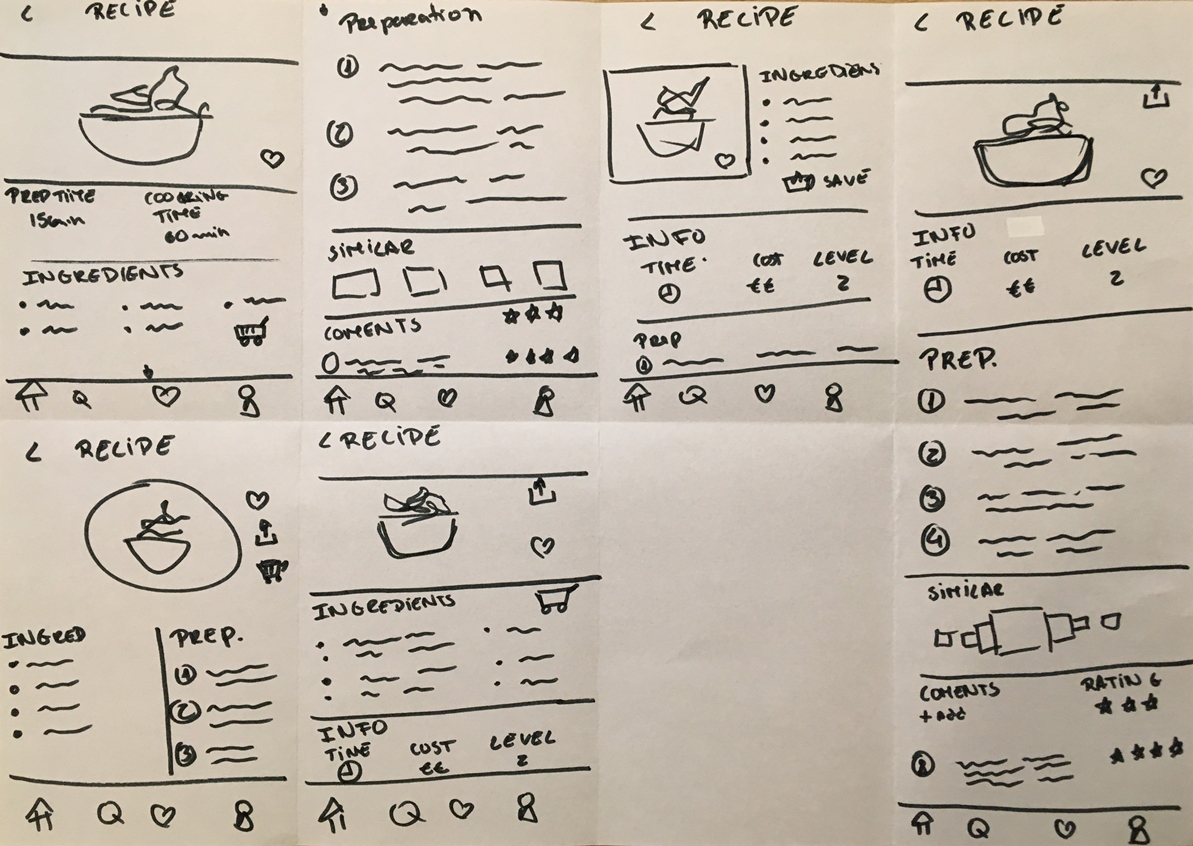 < RECIPE
PREP TIME
15min
COOKING
TIME
60 min
INGREDIENTS
Preparation
1
2
3
SIMILAR
COMENTS
< RECIPE
INGREDIENS
SAVE
INFO
TIME
COST
€€
LEVEL
2
PREP
1
< RECIPE
INFO
TIME
COST
€€
LEVEL
2
PREP.
1
2
3
4
SIMILAR
COMENTS
+ ADD
RATING
< RECIPE
INGRED
PREP.
1
2
3
< RECIPE
INGREDIENTS
INFO
TIME
COST
€€
LEVEL
2